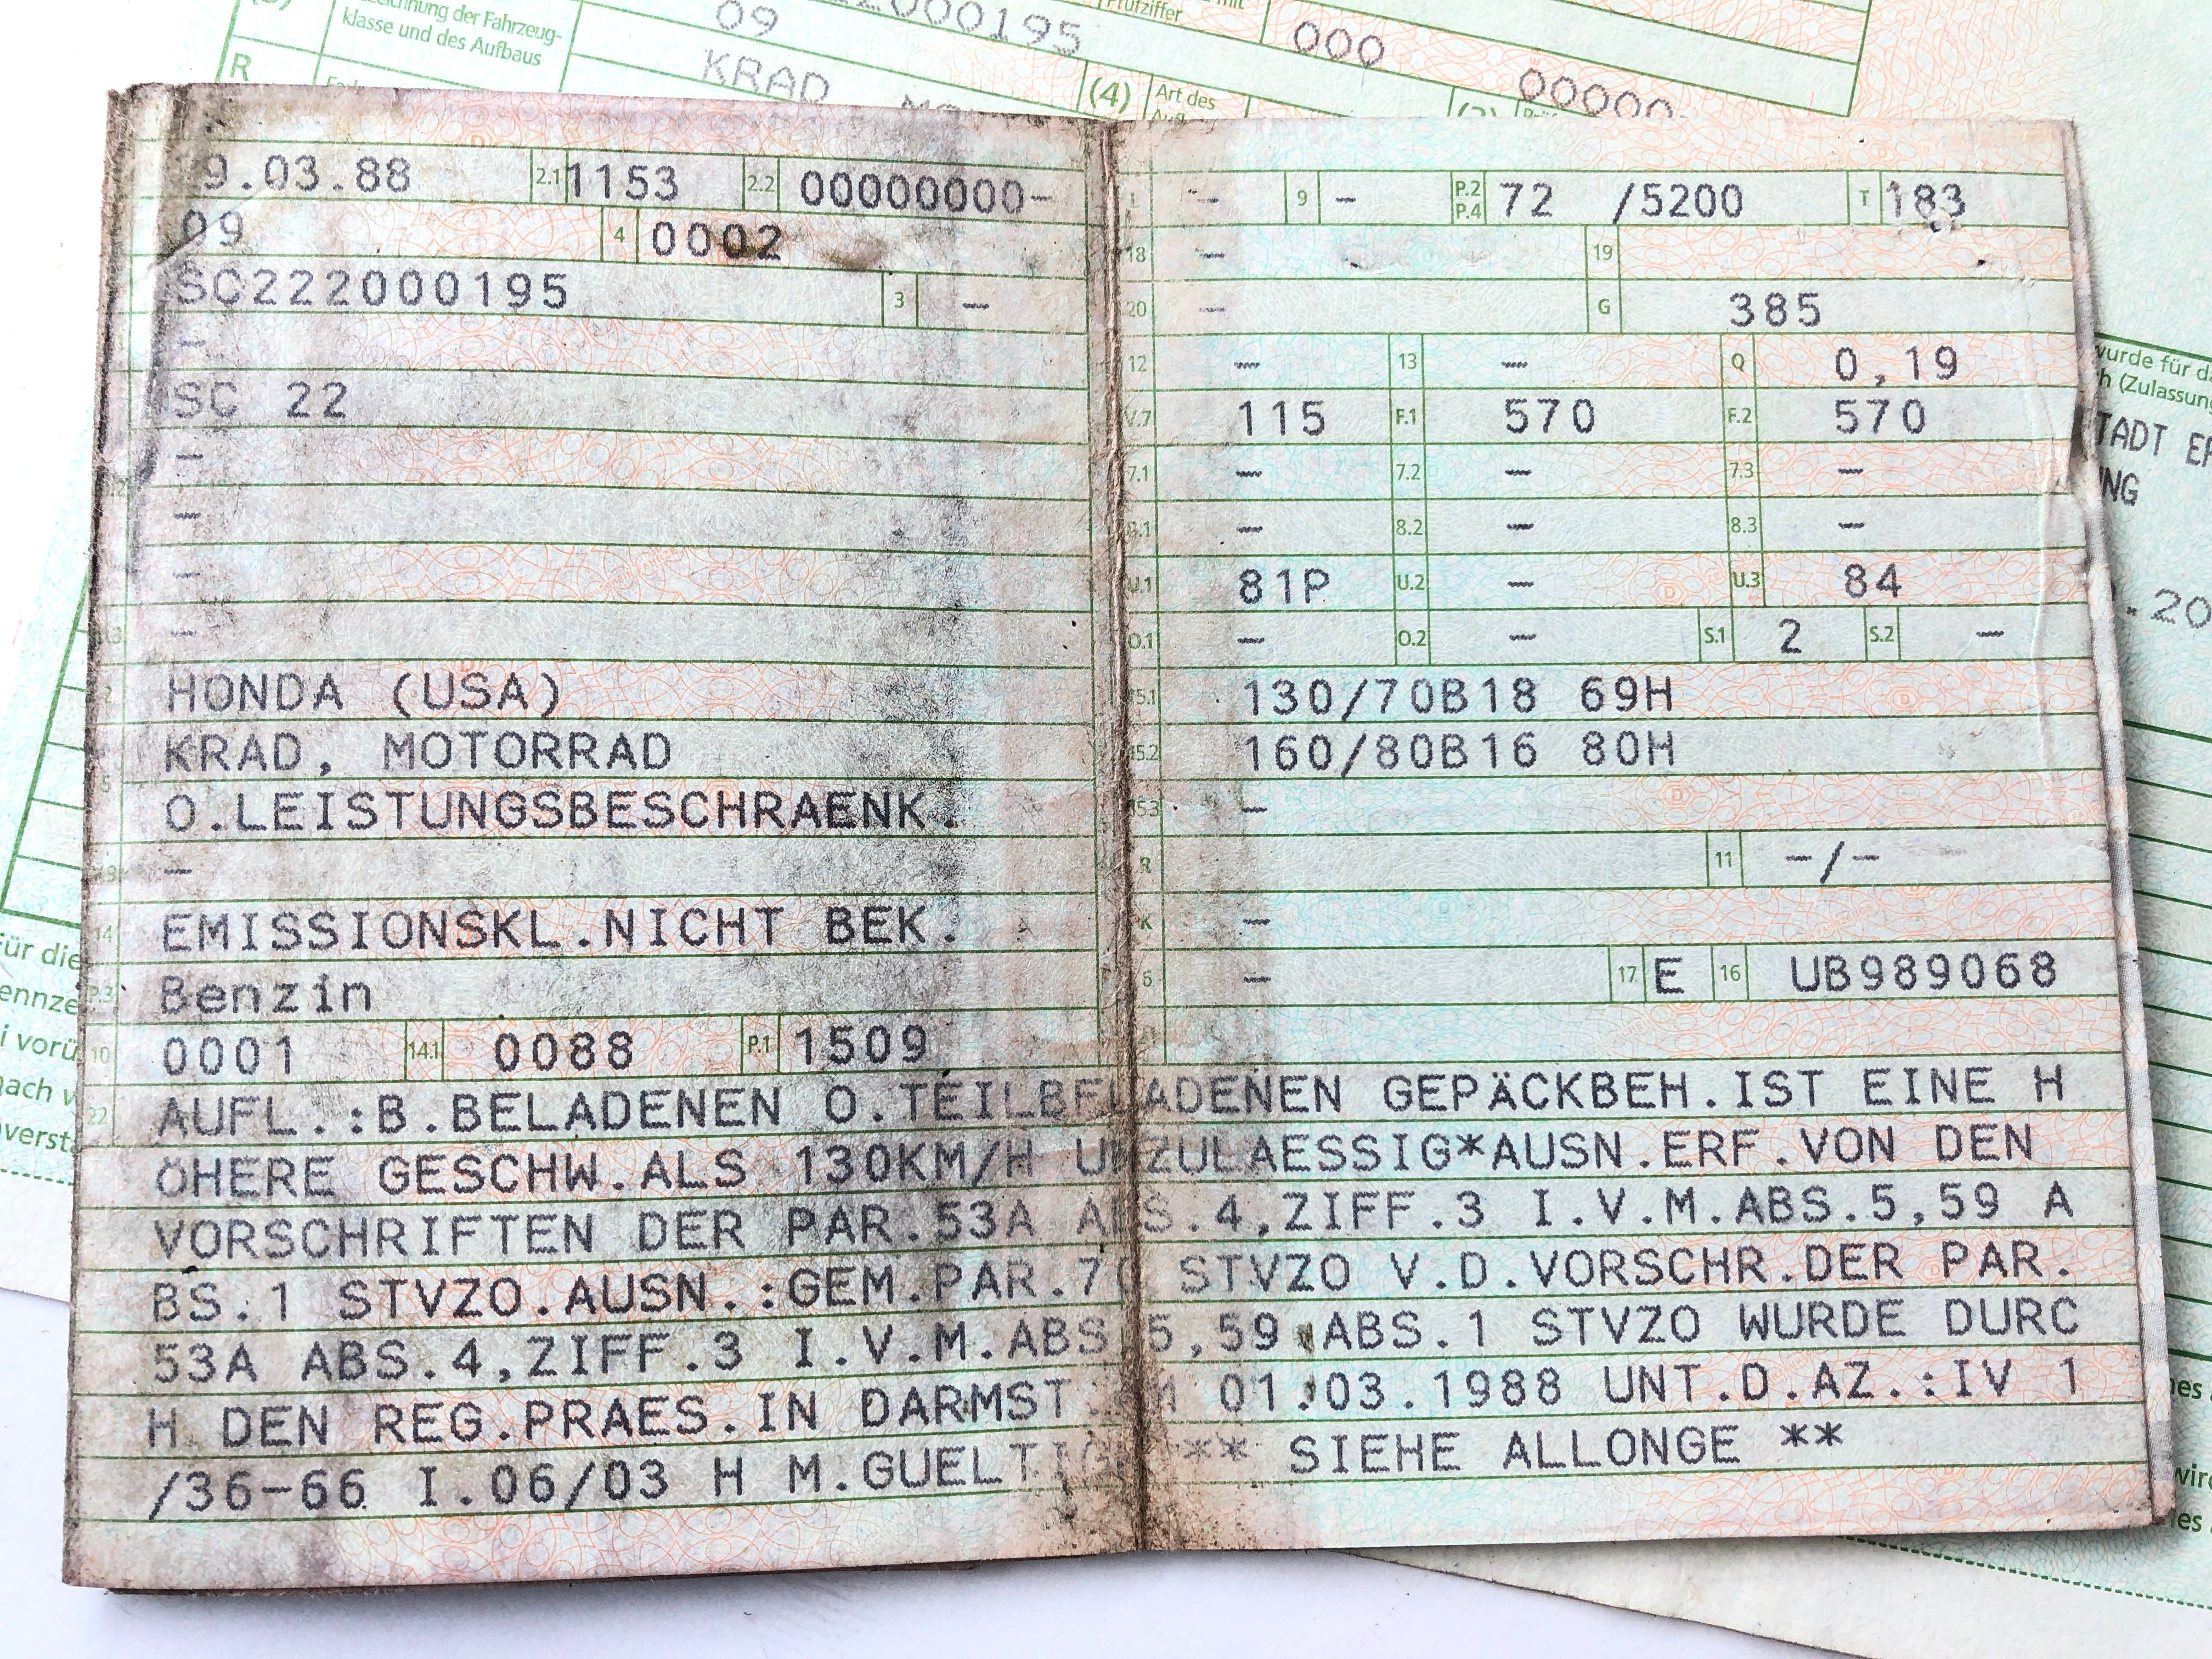 zeichnung der Fahrzeug-
klasse und des Aufbaus
09
000195
Prüfziffer
000
00000
R
KRAD
(4)
Art des
9.03.88 2.1 1153 2.2 00000000-
09 4 0002
SC222000195 3 -
-
SC 22
-
-
-
-
HONDA (USA)
KRAD, MOTORRAD
O.LEISTUNGSBESCHRAENK.
-
14 EMISSIONSKL.NICHT BEK.
P.3 Benzin
10 0001 14.1 0088 P.1 1509
- 9 - P.2 P.4 72 /5200 T 183
18 - 19
20 - G 385
12 - 13 - Q 0,19
V.7 115 F.1 570 F.2 570
7.1 - 7.2 - 7.3 -
8.1 - 8.2 - 8.3 -
U.1 81P U.2 - U.3 84
O.1 - O.2 - S.1 2 S.2 -
15.1 130/70B18 69H
15.2 160/80B16 80H
15.3 -
R 11 -/-
K -
6 - 17 E 16 UB989068
22 AUFL.:B.BELADENEN O.TEILBELADENEN GEPÄCKBEH.IST EINE H
ÖHERE GESCHW.ALS 130KM/H UNZULAESSIG*AUSN.ERF.VON DEN
VORSCHRIFTEN DER PAR.53A ABS.4,ZIFF.3 I.V.M.ABS.5,59 A
BS.1 STVZO.AUSN.:GEM.PAR.70 STVZO V.D.VORSCHR.DER PAR.
53A ABS.4,ZIFF.3 I.V.M.ABS.5,59 ABS.1 STVZO WURDE DURC
H DEN REG.PRAES.IN DARMST. 01.03.1988 UNT.D.AZ.:IV 1
/36-66 I.06/03 H M.GUELTIGK ** SIEHE ALLONGE **
wurde für
(Zulassung
TADT
NG
.20
Für die